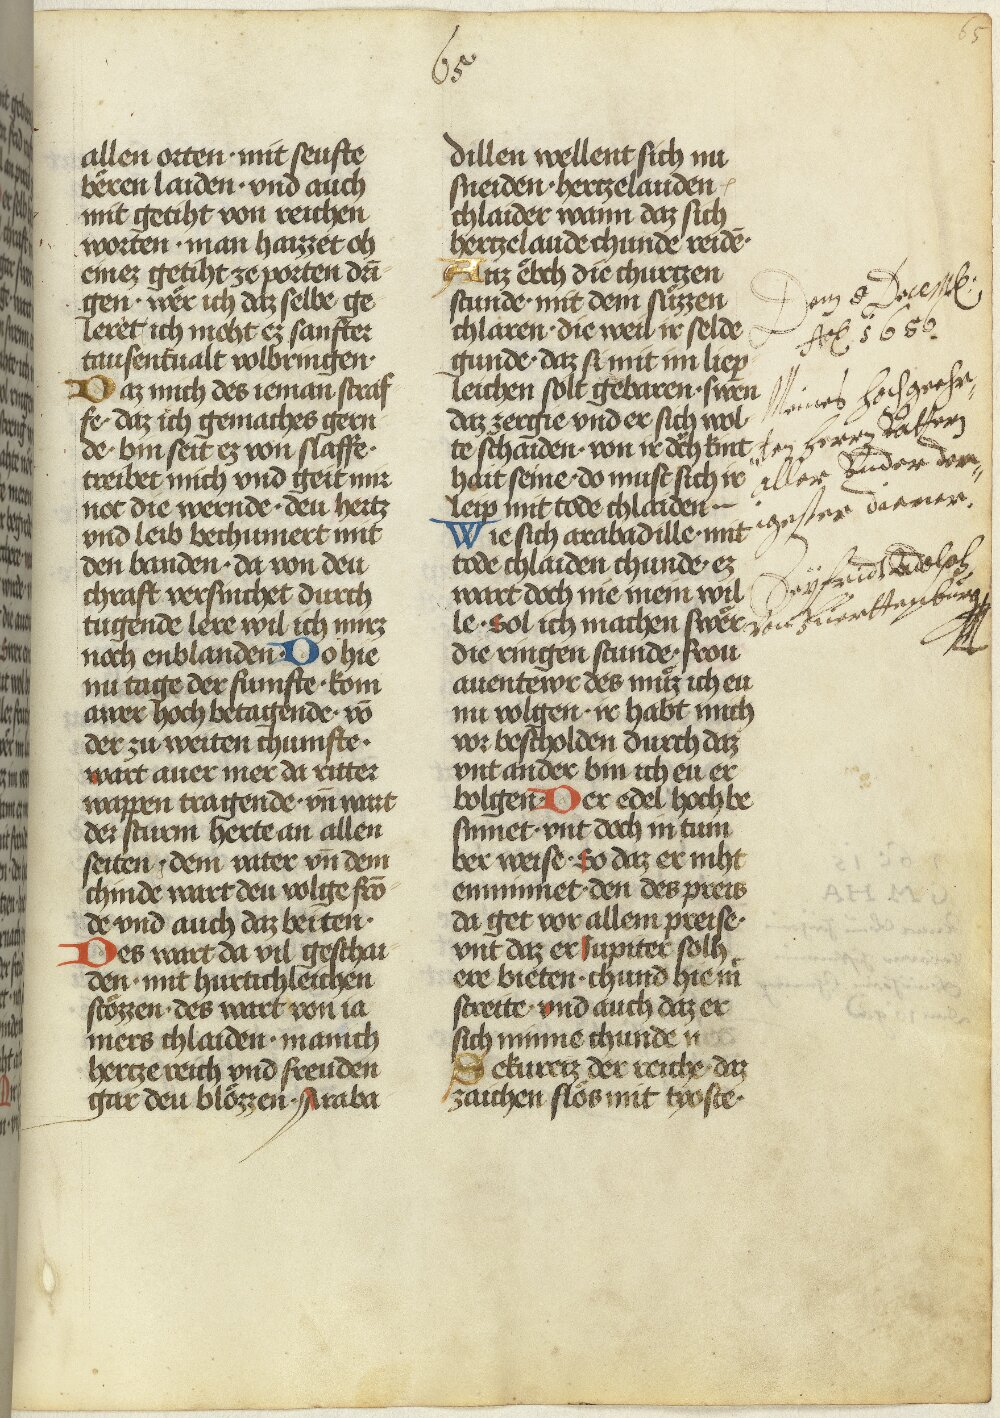 65
65.
allen orten · mit seufte
bëren laiden · vnd auch
mit getiht von reichen
worten · man haizzet oh
einez getiht ze porten dra̅
gen · wër ich daz selbe ge
leret ich moht ez sanfter
tausentualt volbringen ·
Daz mich des ieman straf
fe · daz ich gemaches gern
de · bin seit ez von slaffe ·
treibet mich vnd geit mir
not die wernde · deu hertz
vnd leib bechumert mit
den banden · da von deu
chraft versuchet durch
tugende lere wil ich mirz
noch enblanden · Do hie
nu tage der fumfte · kom
awer hoch betagende · vo̅
der zu weiten chumfte ·
wart auer mer da ritter
wappen tragende · vn̅ wart
der sturm herte an allen
seiten · dem vater vn̅ dem
chinde wart deu volge fro̅
de vnd auch daz beiten ·
Des wart da vil geschai
den · mit hurtichleichen
stözzen · des wart von ia
mers chlaiden · manich
hertze reich vnd freuden
gar deu blözzen · Araba
dillen wellent sich nu
sneiden · hertzelauden
chlaider wann daz sich
hertzelaude chunde reide̅ ·
Auz ëbch die churtzen
stunde · mit dem süzzen
chlaren · die weil ir selde
gunde · daz si mit im liep
leichen solt gebaren · swen
daz zergie vnd er sich wol
te schaiden · von ir döh kint
hait seine · do must sich ir
leip mit tode chlaiden
Wie sich arabadille · mit
tode chlaiden chunde · ez
wart doch nie mein wil
le · Sol ich machen swër
die ringen stunde · frou
auentewr des müz ich eu
nu volgen · ir habt mich
vor bescholden durch daz
vnt ander bin ich eu er
bolgen · Der edel hoch be
sinnet · vnt doch in tum
ber weise · So daz er niht
enminnet · den des preis
da get vor allem preise ·
vnt daz er Jupiter solh
ere bieten · chund hie in
streite · vnd auch daz er
sich minne chunde n
Sekureiz der reiche · daz
zaichen flös mit tyoste ·
Dem 8 Decemb:
A° 1686.
Meines hochgeehr-
ten herrn Vattern
aller Vnder den-
igester diener.
Seÿfrid Adolph